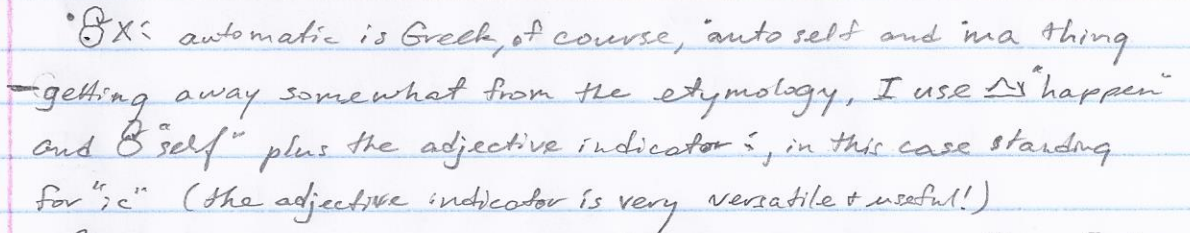 X: automatic is Greek, of course, "auto self and "ma thing
-getting away somewhat from the etymology, I use "happen"
and "self" plus the adjective indicator :, in this case standing
for "ic" (the adjective indicator is very versatile + useful!)